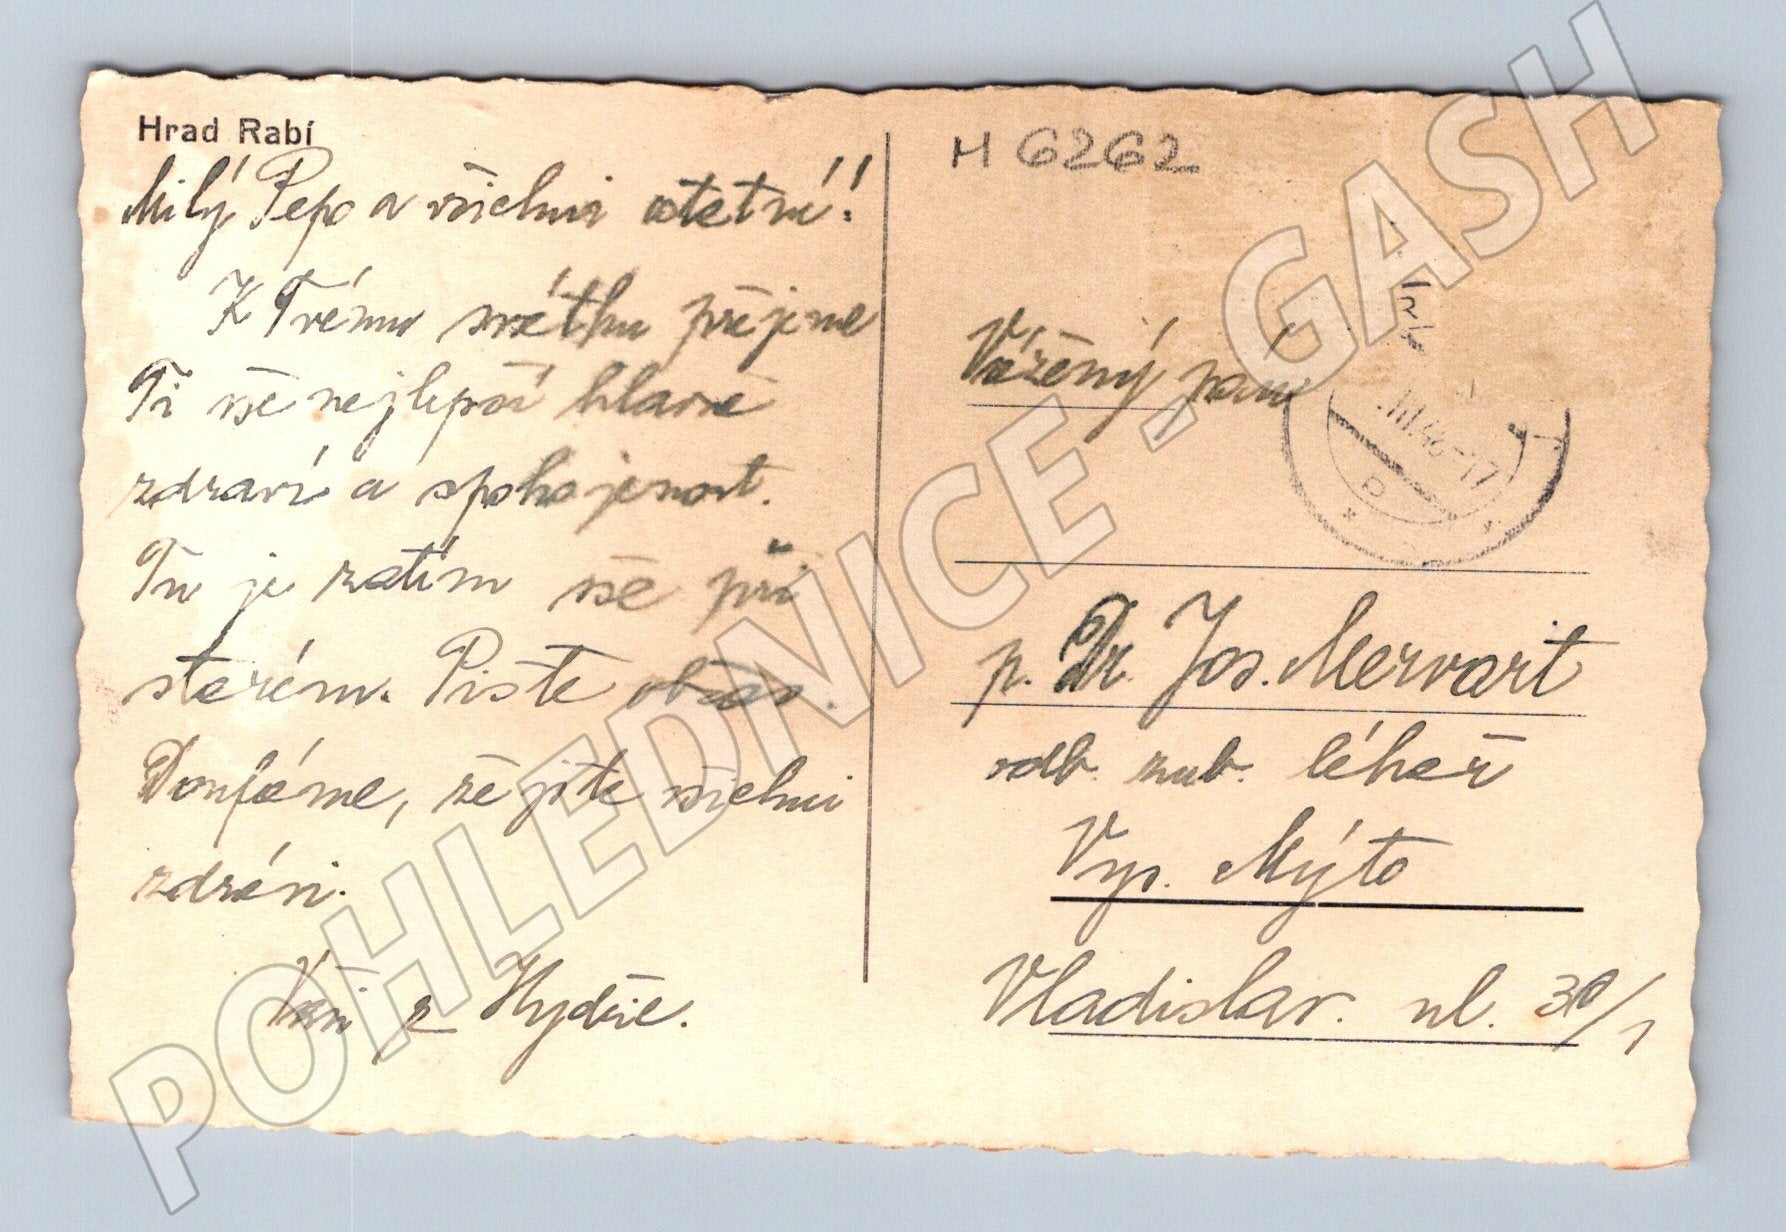 Hrad Rabí
Milý Pepo a všichni ostatní!
K Tvému svátku přejeme
Ti vše nejlepší hlavně
zdraví a spokojenost.
Tu je zatím vše při
starém. Pište občas.
Doufáme, že jste všichni
zdrávi.
Vaši z Hydčic.
H 6262
Vážený pán
.III.48-17
p. Dr. Jos. Mervart
odb. zub. lékař
Vys. Mýto
Vladislav. ul. 30/1
POHLEDNICE - GASH